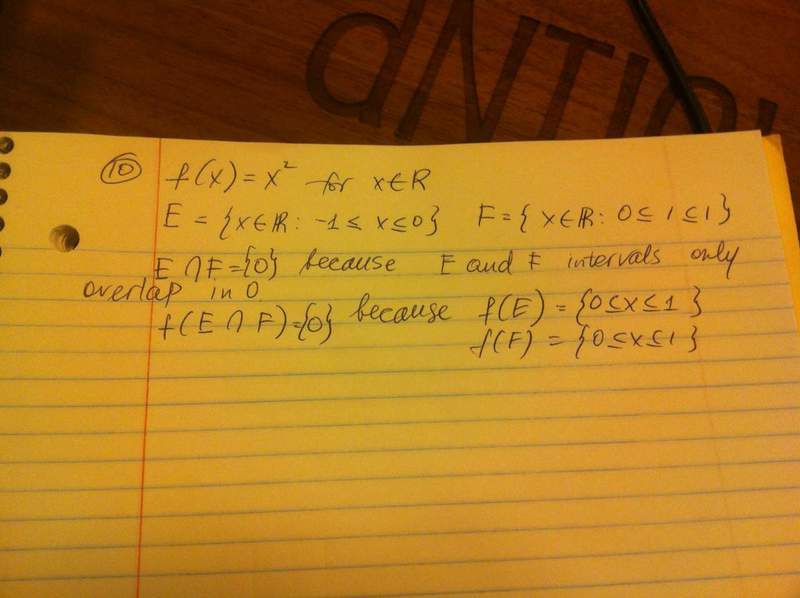 ANTIQU
10 f(x) = x² for x∈R
E = {x∈R: -1 ≤ x ≤ 0} F = { x∈R: 0 ≤ 1 ≤ 1}
E ∩ F = {0} because E and F intervals only
overlap in 0
f(E ∩ F) = {0} because f(E) = {0 ≤ x ≤ 1}
f(F) = {0 ≤ x ≤ 1}